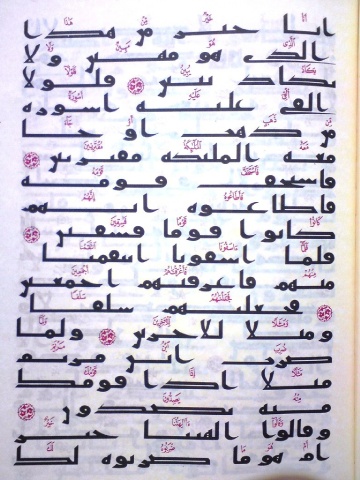 انا خير من هذا
الذي هو مهين ولا
يكاد يبين فلولا
القي عليه اسورة
من ذهب او جا
معه الملئكة مقترنين
فاستخف قومه
فاطاعوه انهم
كانوا قوما فسقين
فلما اسفونا انتقمنا
منهم فاغرقنهم اجمعين
فجعلنهم سلفا
ومثلا للاخرين ولما
ضرب ابن مريم
مثلا اذا قومك
منه يصدون
وقالوا الهتنا خير
ام هو ما ضربوه لك